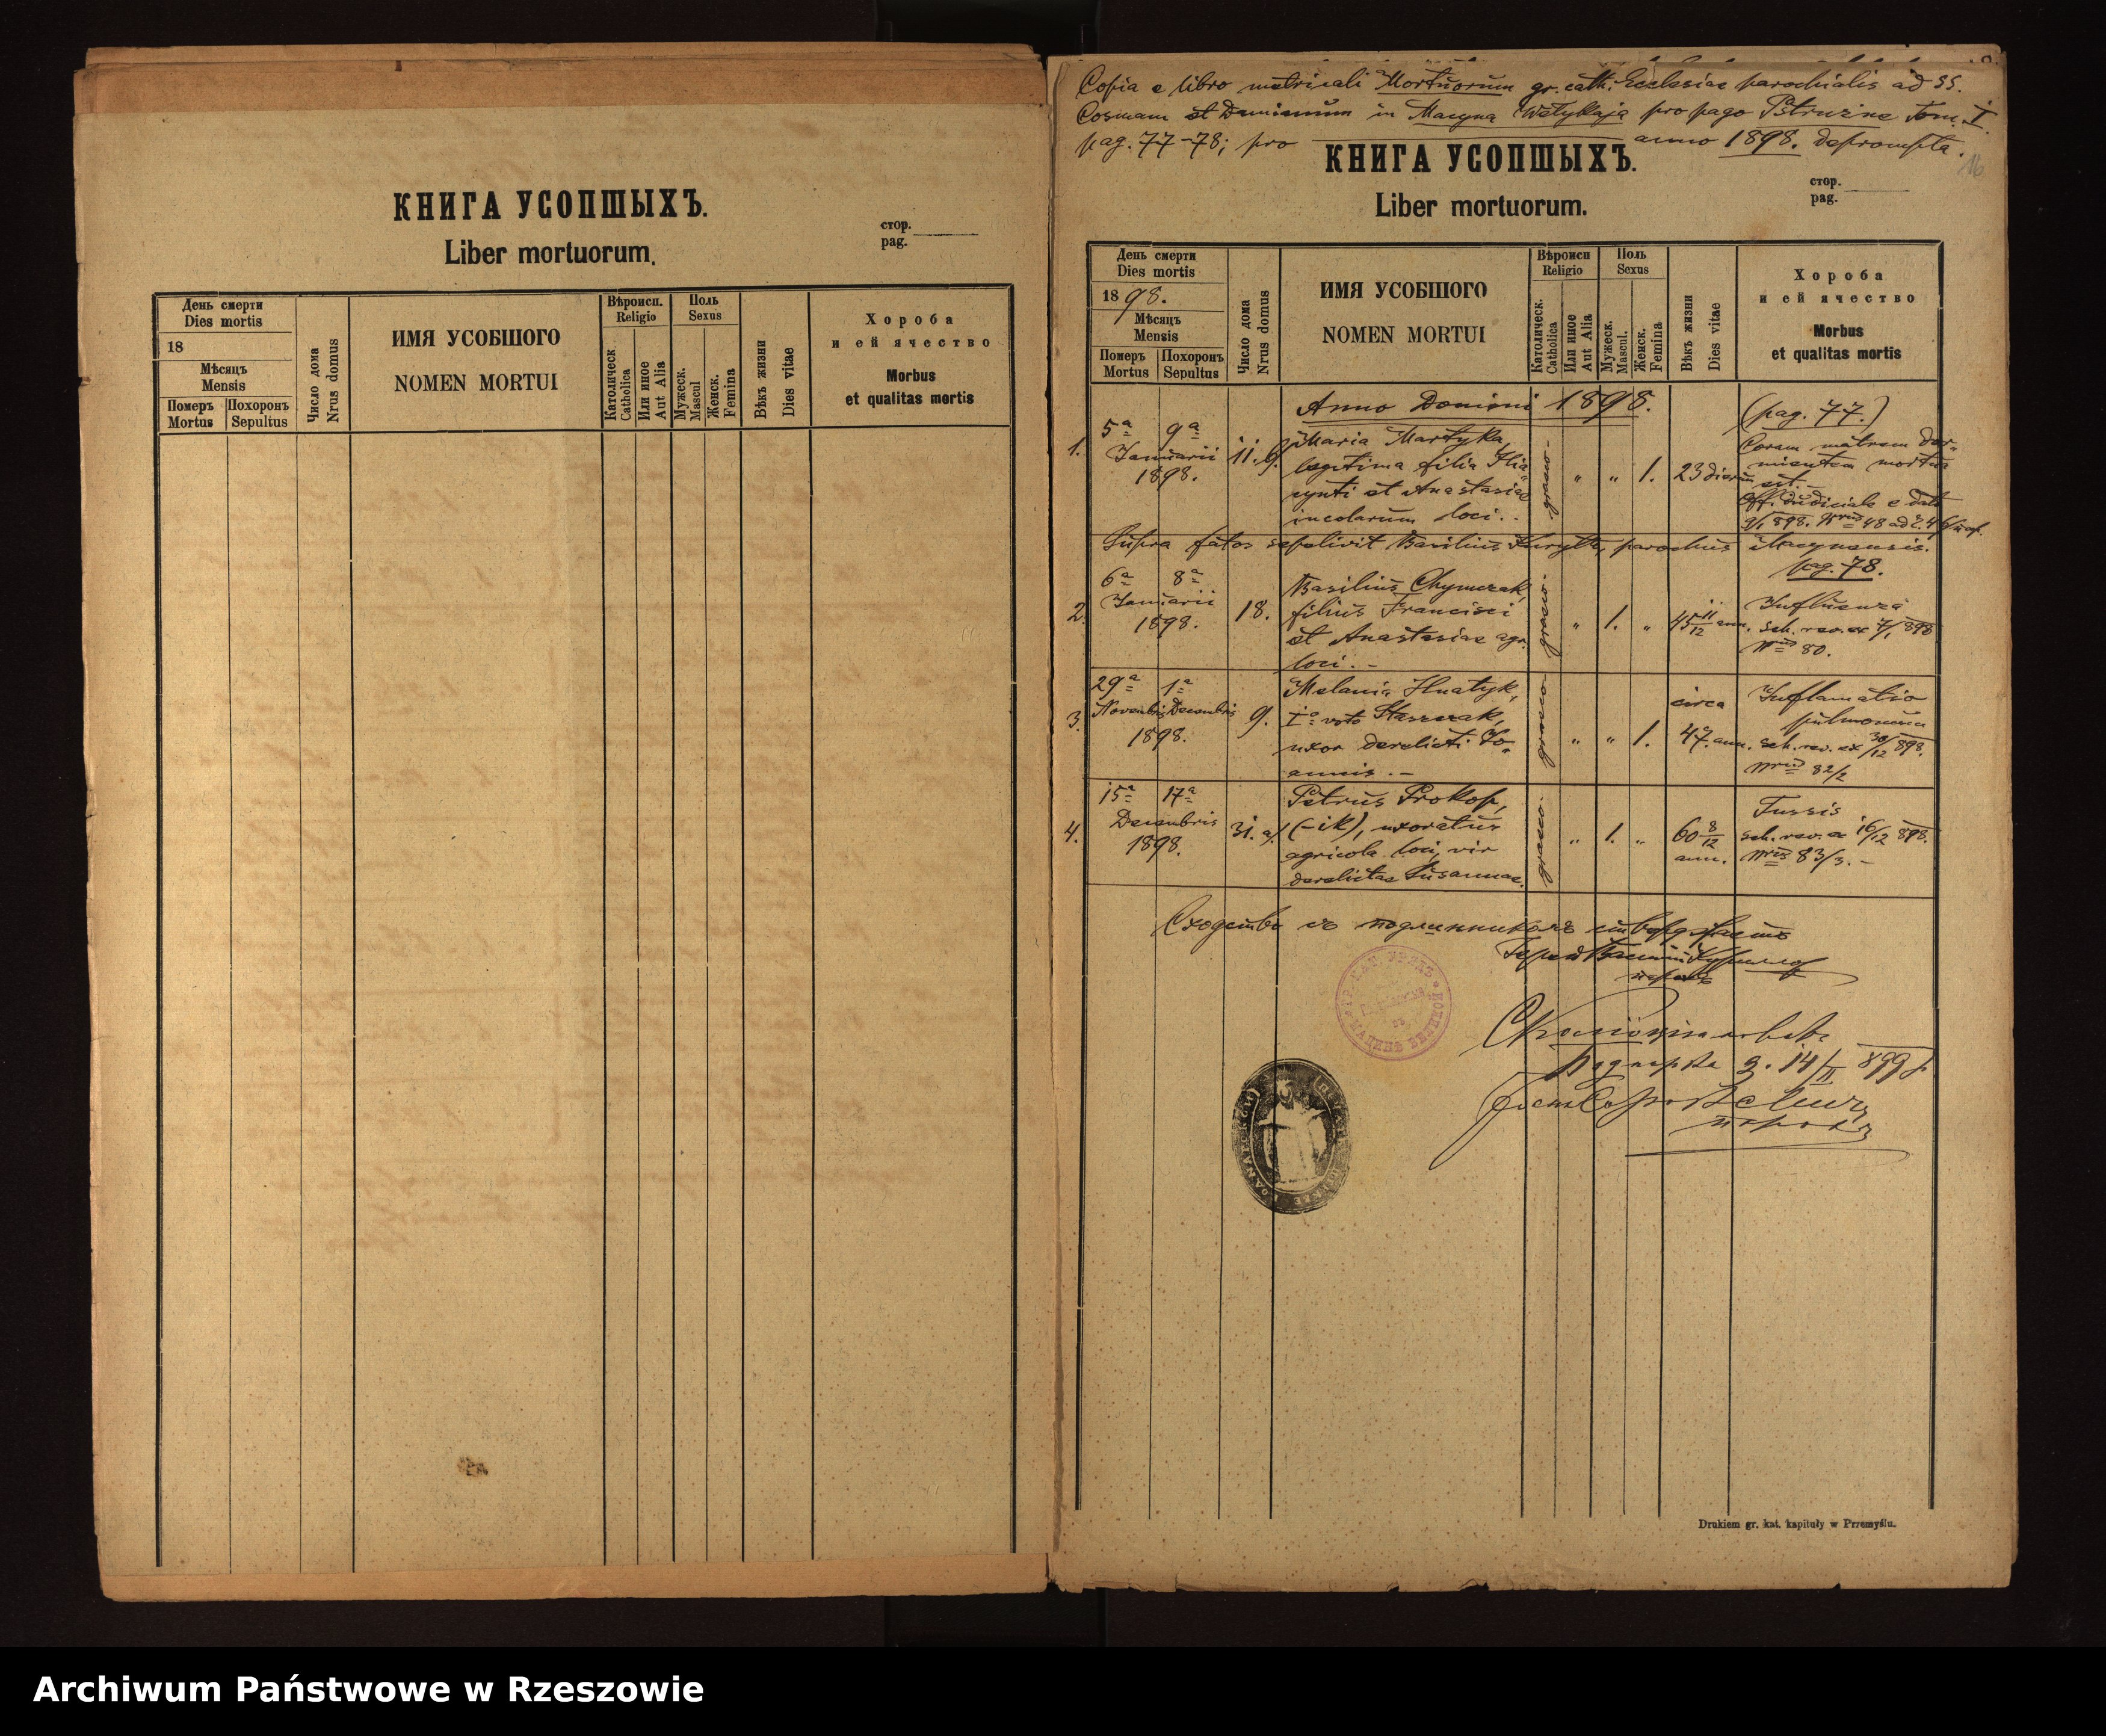 КНИГА УСОПШЫХЪ.
Liber mortuorum.
стор.
pag.
День смерти
Dies mortis
18
Мѣсяцъ
Mensis
Померъ
Mortus
Похоронъ
Sepultus
Число дома
Nrus domus
ИМЯ УСОБШОГО
NOMEN MORTUI
Вѣроисп.
Religio
Католическ
Catholica
Или иное
Aut Alia
Полъ
Sexus
Мужеск.
Mascul
Женск.
Femina
Вѣкъ жизни
Dies vitae
Хороба
и ей ячество
Morbus
et qualitas mortis
Copia e libro metricali Mortuorum gr. cath. Ecclesiae parochialis ad SS.
Cosmam et Damianum in Macyna Welykaja pro pago Pstrużne Tom. I.
pag. 77-78; pro anno 1898. deprompta.
16
КНИГА УСОПШЫХЪ.
Liber mortuorum.
стор.
pag.
День смерти
Dies mortis
1898.
Мѣсяцъ
Mensis
Померъ
Mortus
Похоронъ
Sepultus
Число дома
Nrus domus
ИМЯ УСОБШОГО
NOMEN MORTUI
Вѣроисп
Religio
Католическ.
Catholica
Или иное
Aut Alia
Полъ
Sexus
Мужеск.
Mascul.
Женск.
Femina
Вѣкъ жизни
Dies vitae
Хороба
и ей ячество
Morbus
et qualitas mortis
Anno Domini 1898.
(pag. 77.)
1.
5ª 9ª
Januarii
1898.
11.
Maria Martyka,
legitima filia Hia-
cynti et Anastasiae
incolarum loci. -
graeco -
" " 1.
23 dierum
Coram matrem dor-
mientem mortua
est. -
Supra fatos sepelivit Basilius Kuryłło, parochus Macynensis.
pag. 78.
2.
6ª 8ª
Januarii
1898.
18.
Basilius Chymczak,
filius Francisci
et Anastasiae agr.
loci. -
graeco -
" 1. "
45 11/12 ann.
Influenza
sch. rev. ex 7/1 898
Nrus 80.
3.
29ª 1ª
Novembris Decembris
1898.
9.
Melania Hnatyk,
Iº voto Staszczak,
uxor derelicti Jo-
annis. -
graeco
" " 1.
circa
47. ann.
Inflamatio
pulmonum
sch. rev. ex 30/12 898.
Nrus 82/2
4.
15ª 17ª
Decembris
1898.
31. a/.
Petrus Prokop,
(-ik), uxoratus
agricola loci, vir
derelictae Susannae.
graeco.
" 1. "
60 8/12
ann.
Tussis
sch. rev. ex 16/12 898.
Nrus 83/3. -
Сходство съ подлинникомъ утверждаетъ
Іерей Василій Курилло
парохъ
14/II 899
парохъ
Drukiem gr. kat. kapituły w Przemyślu.
Archiwum Państwowe w Rzeszowie